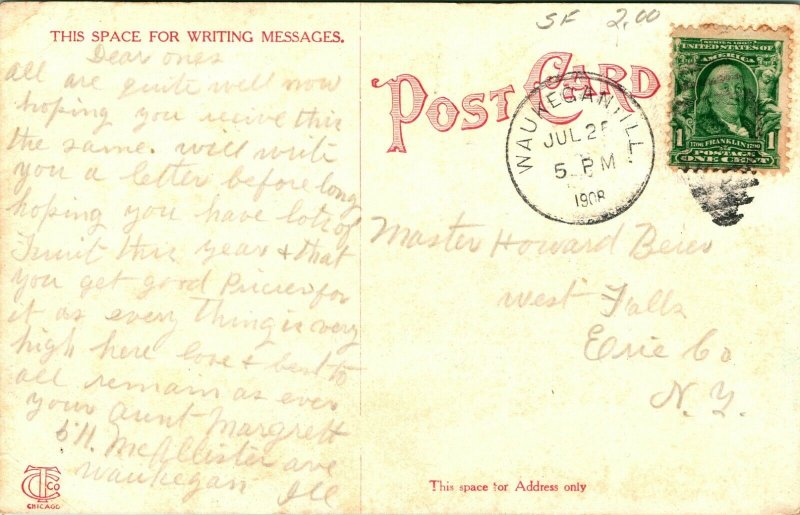 SF 2.00
THIS SPACE FOR WRITING MESSAGES.
Dear ones
all are quite well now
hoping you receive this
the same. will write
you a letter before long
hoping you have lots of
Fruit this year & that
you get good Prices for
it as every thing is very
high here love & best to
all remain as ever
your Aunt Margrett
611 McAllister ave
Waukegan Ill
TC Co
CHICAGO
POST CARD
WAUKEGAN, ILL.
JUL 2
5 PM
1908
SERIES 1902
UNITED STATES OF
AMERICA
1 1
1706 FRANKLIN 1790
POSTAGE
ONE CENT
Master Howard
West Falls
Erie Co
N.Y.
This space for Address only